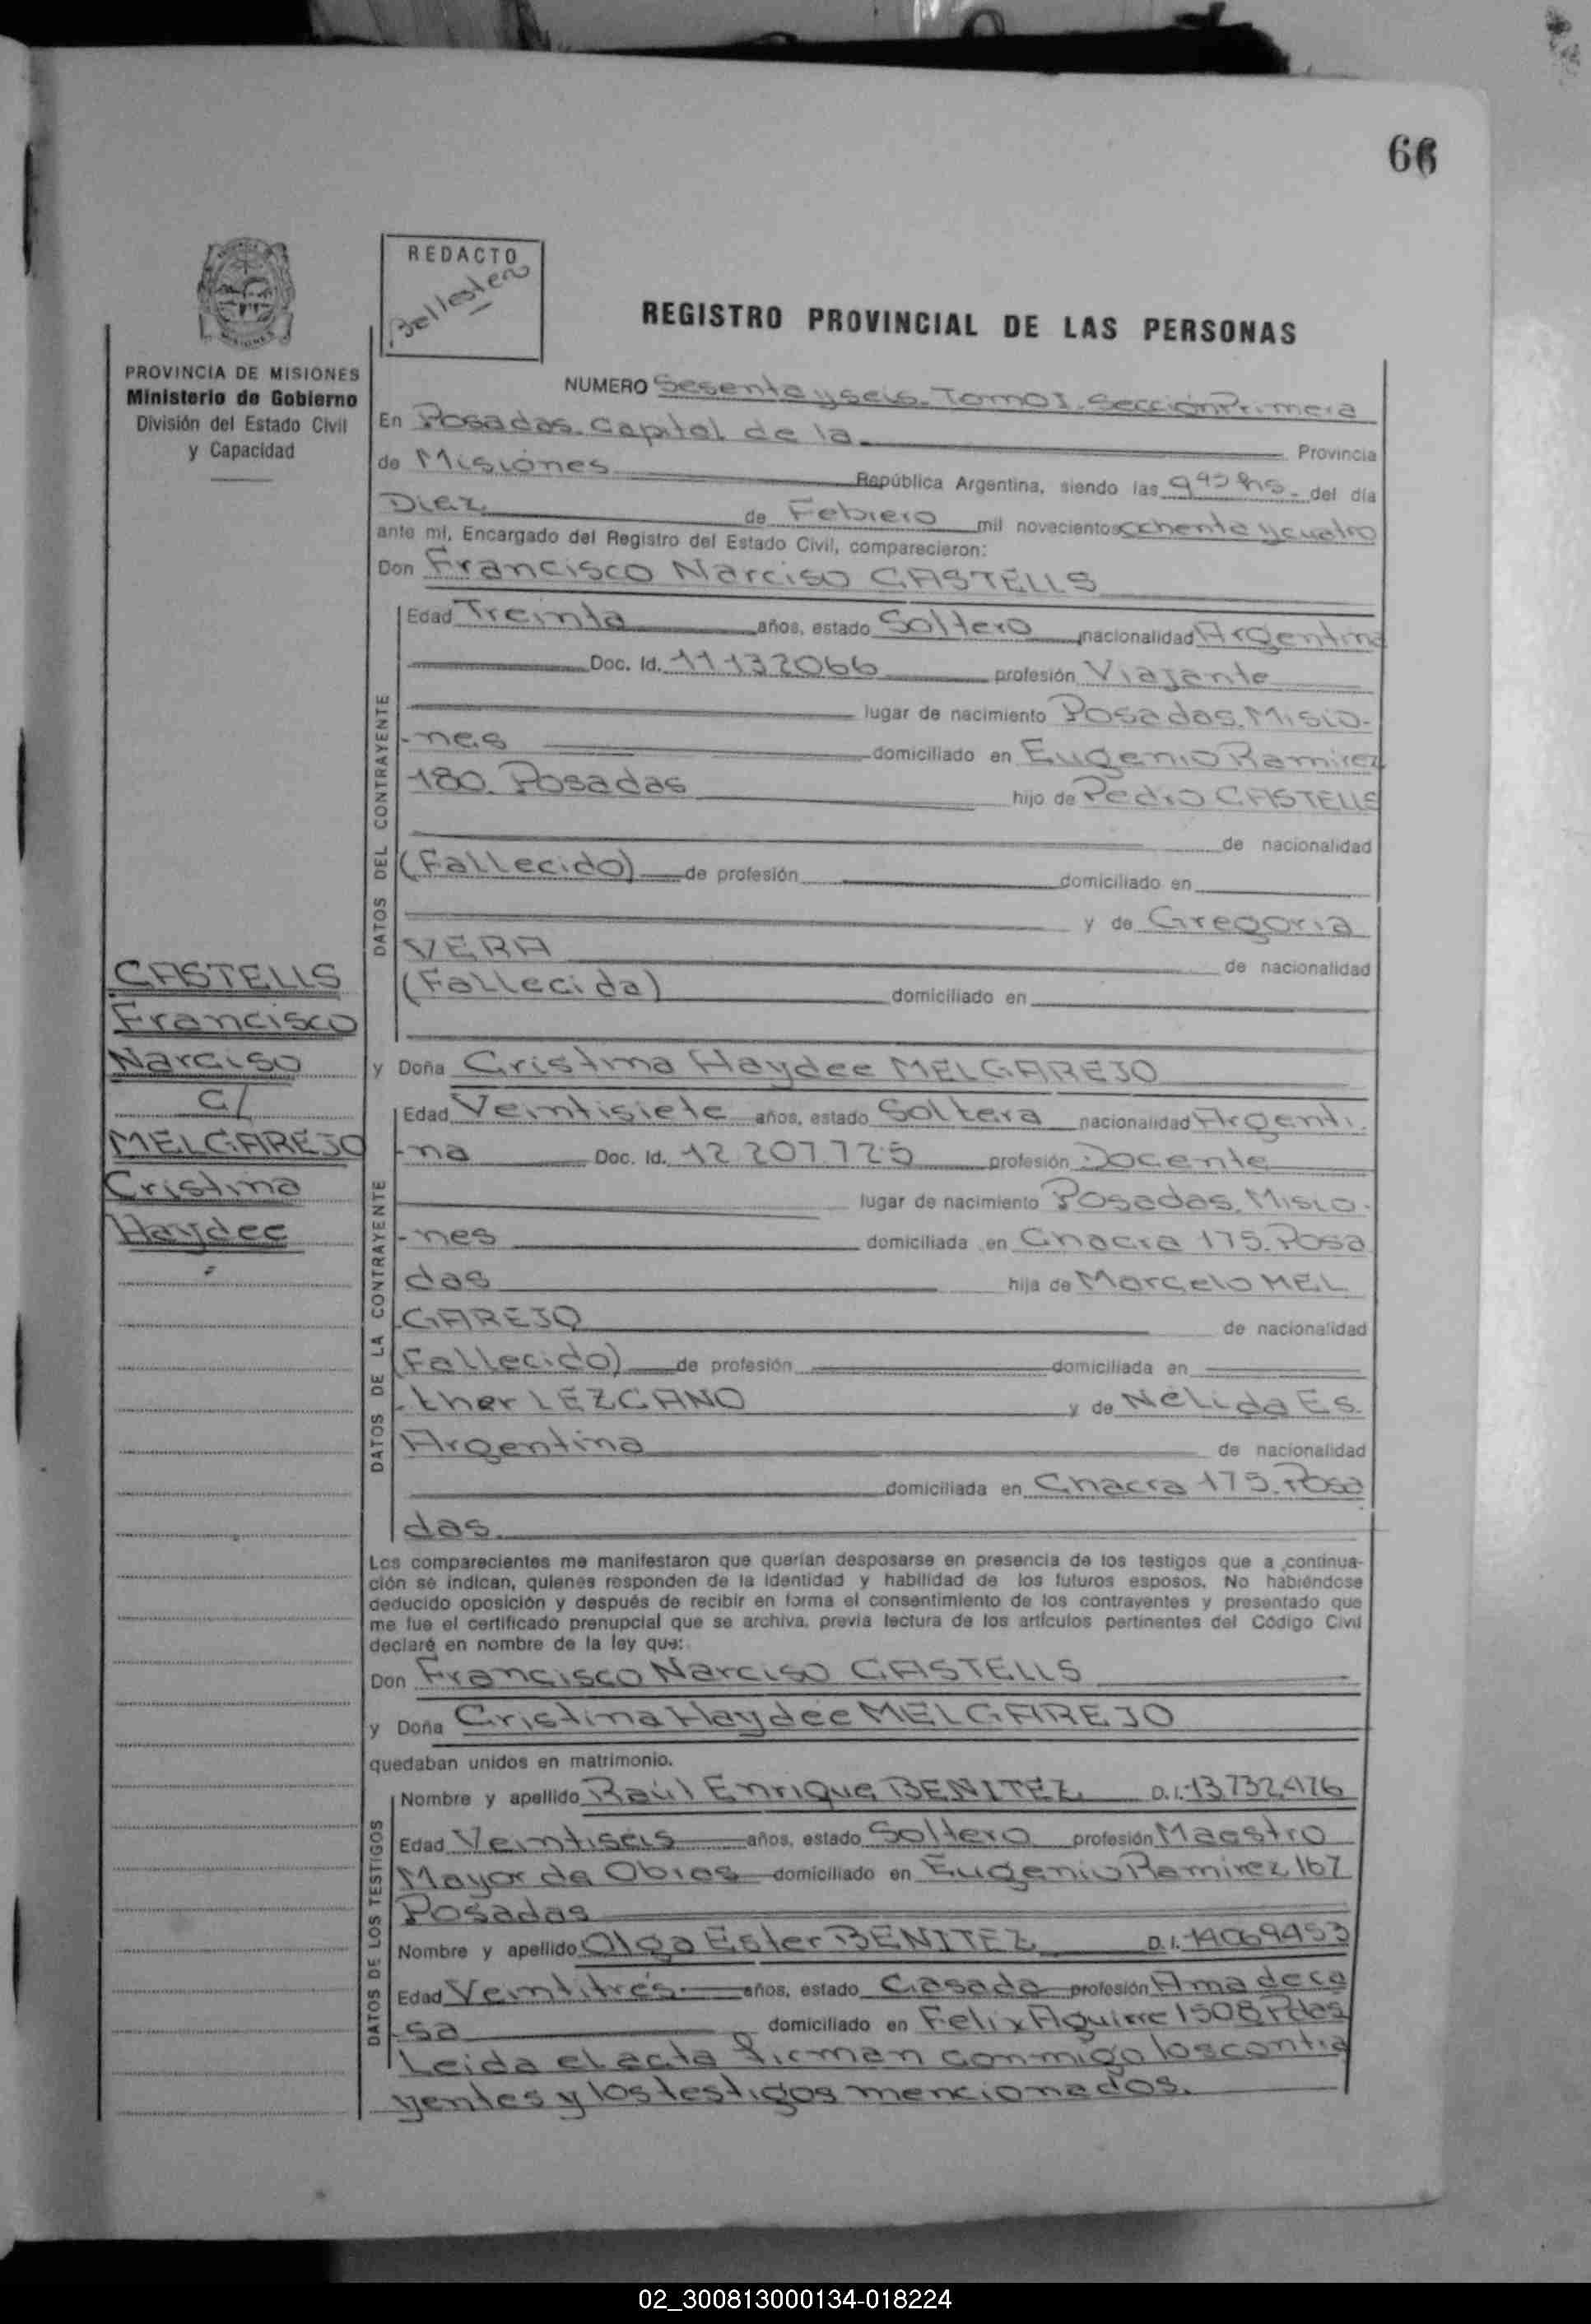 66
REDACTO
Ballester
REGISTRO PROVINCIAL DE LAS PERSONAS
PROVINCIA DE MISIONES
Ministerio de Gobierno
División del Estado Civil
y Capacidad
NUMERO Sesenta y seis. Tomo I. Sección Primera
En Posadas. Capital de la Provincia
de Misiones República Argentina, siendo las 9 hs. del día
Diez de Febrero mil novecientos ochenta y cuatro
ante mí, Encargado del Registro del Estado Civil, comparecieron:
Don Francisco Narciso CASTELLS
DATOS DEL CONTRAYENTE
Edad Treinta años, estado Soltero nacionalidad Argentina
Doc. Id. 11132066 profesión Viajante
lugar de nacimiento Posadas. Misio-
-nes domiciliado en Eugenio Ramirez
180. Posadas hijo de Pedro CASTELLS
de nacionalidad
(Fallecido) de profesión domiciliado en
y de Gregoria
VERA de nacionalidad
(Fallecida) domiciliado en
CASTELLS
Francisco
Narciso
C/
MELGAREJO
Cristina
Haydee
y Doña Cristina Haydee MELGAREJO
DATOS DE LA CONTRAYENTE
Edad Veintisiete años, estado Soltera nacionalidad Argenti.
-na Doc. Id. 12 207.725 profesión Docente
lugar de nacimiento Posadas. Misio.
-nes domiciliada en Chacra 175. Posa
das hija de Marcelo MEL
GAREJO de nacionalidad
(Fallecido) de profesión domiciliada en
-ther LEZCANO y de Nélida Es.
Argentina de nacionalidad
domiciliada en Chacra 175. Posa
das.
Los comparecientes me manifestaron que querían desposarse en presencia de los testigos que a continua-
ción se indican, quienes responden de la identidad y habilidad de los futuros esposos. No habiéndose
deducido oposición y después de recibir en forma el consentimiento de los contrayentes y presentado que
me fue el certificado prenupcial que se archiva, previa lectura de los artículos pertinentes del Código Civil
declaré en nombre de la ley que:
Don Francisco Narciso CASTELLS
y Doña Cristina Haydée MELGAREJO
quedaban unidos en matrimonio.
DATOS DE LOS TESTIGOS
Nombre y apellido Raúl Enrique BENITEZ D.I. 13.732.476
Edad Veintiseis años, estado Soltero profesión Maestro
Mayor de Obras domiciliado en Eugenio Ramirez 167
Posadas
Nombre y apellido Olga Ester BENITEZ D.I. 14069453
Edad Veintitrés años, estado Casada profesión Ama de ca
-sa domiciliado en Felix Aguirre 1508 Pdas
Leída el acta firman conmigo los contra
yentes y los testigos mencionados.
02_300813000134-018224